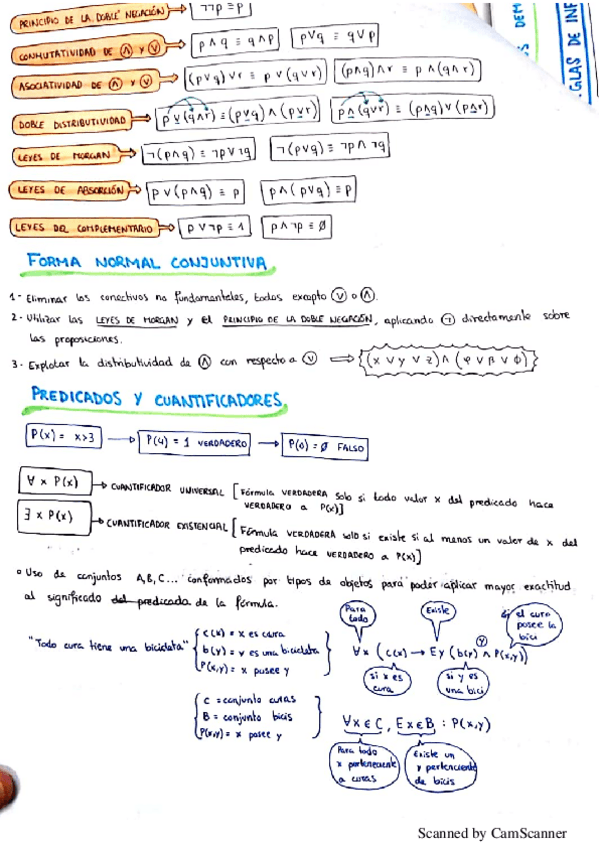 PRINCIPIO DE LA DOBLE NEGACIÓN → ¬¬p ≡ p
CONMUTATIVIDAD DE ∧ y ∨ → p∧q ≡ q∧p   p∨q ≡ q∨p
ASOCIATIVIDAD DE ∧ y ∨ → (p∨q)∨r ≡ p∨(q∨r)   (p∧q)∧r ≡ p∧(q∧r)
DOBLE DISTRIBUTIVIDAD → p∨(q∧r) ≡ (p∨q)∧(p∨r)   p∧(q∨r) ≡ (p∧q)∨(p∧r)
LEYES DE MORGAN → ¬(p∧q) ≡ ¬p∨¬q   ¬(p∨q) ≡ ¬p∧¬q
LEYES DE ABSORCIÓN → p∨(p∧q) ≡ p   p∧(p∨q) ≡ p
LEYES DEL COMPLEMENTARIO → p∨¬p ≡ 1   p∧¬p ≡ ∅
FORMA NORMAL CONJUNTIVA
1- Eliminar los conectivos no fundamentales, todos excepto ∨ o ∧.
2- Utilizar las LEYES DE MORGAN y el PRINCIPIO DE LA DOBLE NEGACIÓN, aplicando ¬ directamente sobre
las proposiciones.
3- Explotar la distributividad de ∧ con respecto a ∨ ⇒ {(x∨y∨z)∧(φ∨β∨ϕ)}
PREDICADOS Y CUANTIFICADORES.
P(x) = x>3 → P(4) = 1 VERDADERO → P(0) = ∅ FALSO
∀x P(x) → CUANTIFICADOR UNIVERSAL [Fórmula VERDADERA solo si todo valor x del predicado hace
VERDADERO a P(x)]
∃x P(x) → CUANTIFICADOR EXISTENCIAL [Fórmula VERDADERA solo si existe si al menos un valor de x del
predicado hace VERDADERO a P(x)]
Uso de conjuntos A,B,C... conformados por tipos de objetos para poder aplicar mayor exactitud
al significado del predicado de la fórmula.
Para todo
Existe
el cura posee la bici
"Todo cura tiene una bicicleta"
C(x) = x es cura
b(y) = y es una bicicleta
P(x,y) = x posee y
∀x (C(x) → Ey (b(y) ∧ P(x,y))
y
si x es cura
si y es una bici
C = conjunto curas
B = conjunto bicis
P(x,y) = x posee y
∀x∈C, Ex∈B : P(x,y)
Para todo x perteneciente a curas
Existe un y perteneciente de bicis
Scanned by CamScanner